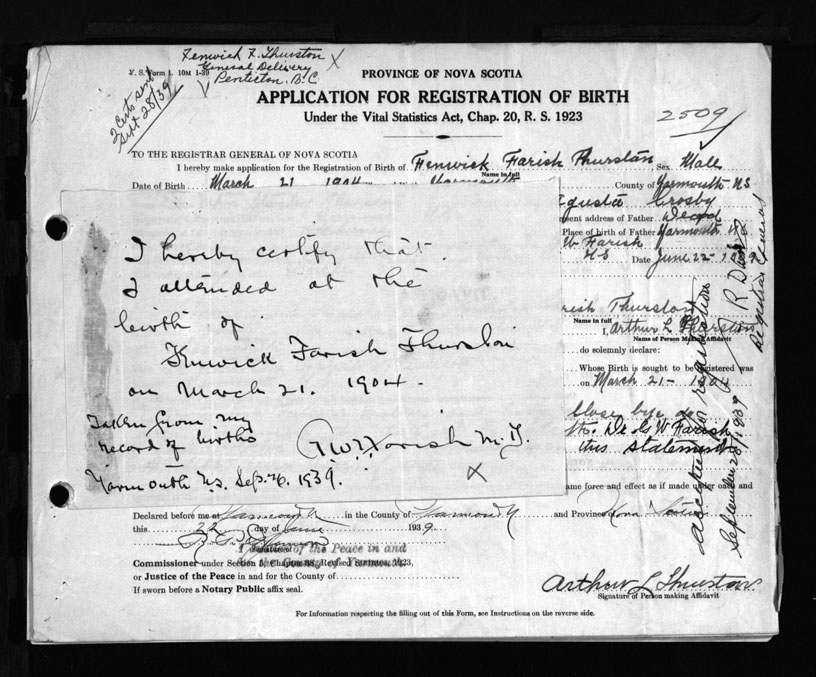 Fenwick F. Thurston X
General Delivery
V. S. Form 1. 10M 1-39
Penticton, B.C.
2 Certs sent
Sept 28/39
PROVINCE OF NOVA SCOTIA
APPLICATION FOR REGISTRATION OF BIRTH
Under the Vital Statistics Act, Chap. 20, R. S. 1923
2509
TO THE REGISTRAR GENERAL OF NOVA SCOTIA
I hereby make application for the Registration of Birth of Fenwick Farish Thurston Sex Male
Name in full
Date of Birth March 21 1904 Yarmouth County of Yarmouth N.S
Augusta Crosby
present address of Father Decd
Place of birth of Father Yarmouth
W Farish
N S Date June 22 - 1939
I hereby certify that
I attended at the
birth of
Fenwick Farish Thurston
on March 21. 1904.
Taken from my
record of births
G.W.T. Farish M.D.
Yarmouth N.S. Sep. 26. 1939.
X
rish Thurston
Name in full
I, Arthur L Thurston
Name of Person Making Affidavit
do solemnly declare:
Whose Birth is sought to be registered was
on March 21 - 1904
Close bye
Dr. G W Farish
this statement
same force and effect as if made under oath and
accepted for registration
September 28/1939
Registrar General
Declared before me at Yarmouth in the County of Yarmouth and Province Nova Scotia
this 22 day of June 1939
of the Peace in and
Commissioner under Section
or Justice of the Peace in and for the County of
If sworn before a Notary Public affix seal.
Arthur L Thurston
Signature of Person making Affidavit
For Information respecting the filling out of this Form, see Instructions on the reverse side.